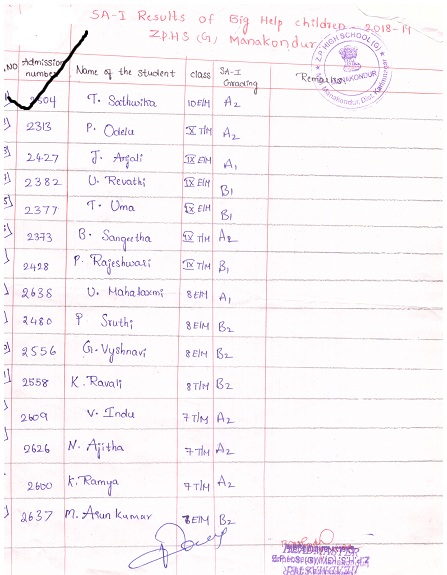 SA-I Results of Big Help children - 2018-19
Z.P.HS (G), Manakondur
S.NO Admission number Name of the student class SA-I Grading Remarks
2504 T. Sathwika 10 E/M A2
2313 P. Odelu X T/M A2
2427 J. Anjali IX E/M A1
2382 U. Revathi IX E/M B1
2377 T. Uma IX E/M B1
2373 B. Sangeetha IX T/M A2
2428 P. Rajeshwari IX T/M B1
2638 U. Mahalaxmi 8 E/M A1
2480 P Sruthi 8 E/M B2
2556 G. Vyshnavi 8 E/M B2
2558 K. Ravali 8 T/M B2
2609 V. Indu 7 T/M A2
2626 N. Ajitha 7 T/M A2
2600 K. Ramya 7 T/M A2
2637 M. Arun Kumar E/M B2